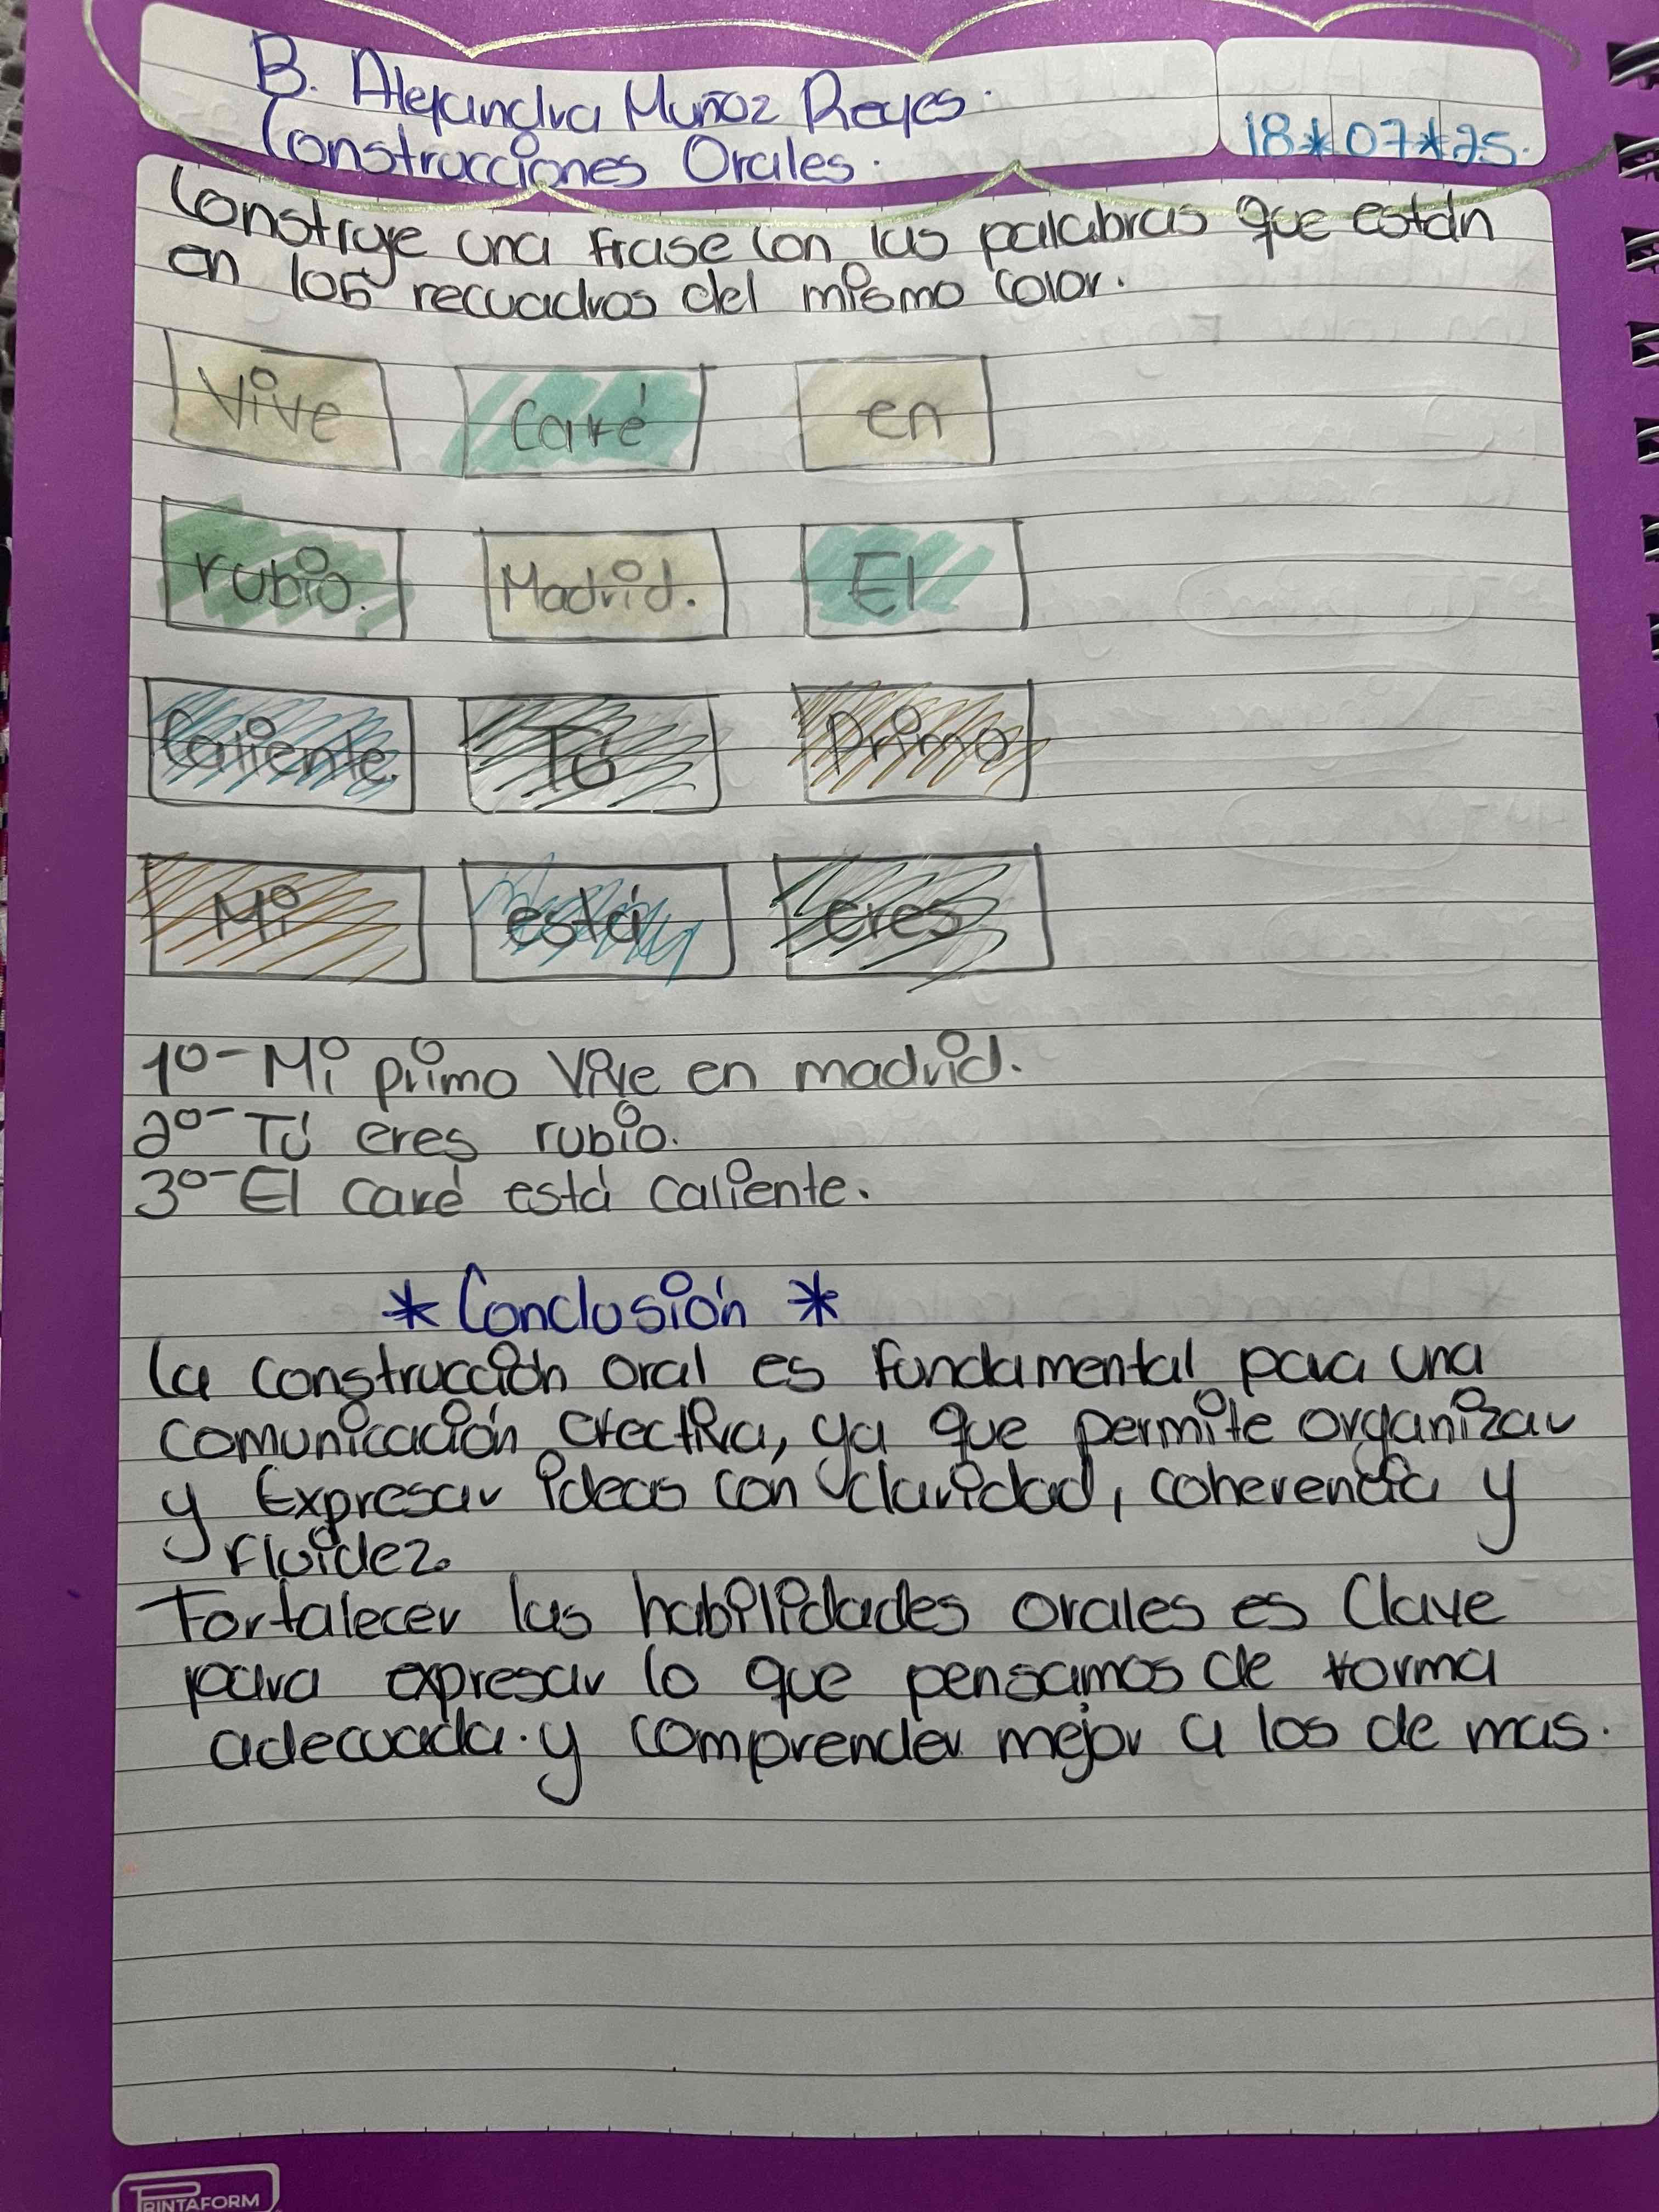 B. Alejandra Muñoz Reyes.
Construcciones Orales.
18*07*25.
Construye una frase con las palabras que están
en los recuadros del mismo color.
Vive Café en
rubio. Madrid. El
Caliente. Tú Primo
Mi está eres
1º- Mi primo Vive en madrid.
2º- Tú eres rubio.
3º- El Café está caliente.
* Conclusión *
La construcción oral es fundamental para una
comunicación efectiva, ya que permite organizar
y Expresar ideas con claridad, coherencia y
fluidez.
Fortalecer las habilidades orales es Clave
para expresar lo que pensamos de forma
adecuada. y comprender mejor a los de mas.
PRINTAFORM